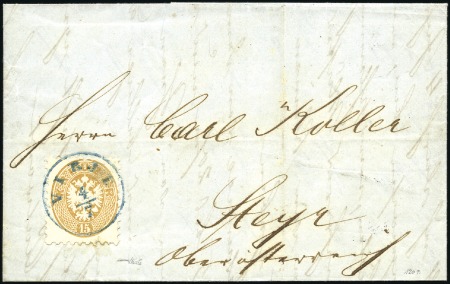 Herrn Carl Koller
Steyr
Oberösterreich
15